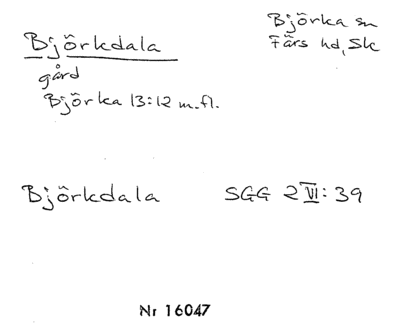 Björkdala
Björka sn
Färs hd, Sk
gård
Björka 13:12 m.fl.
Björkdala SGG 2 VI: 39
Nr 16047